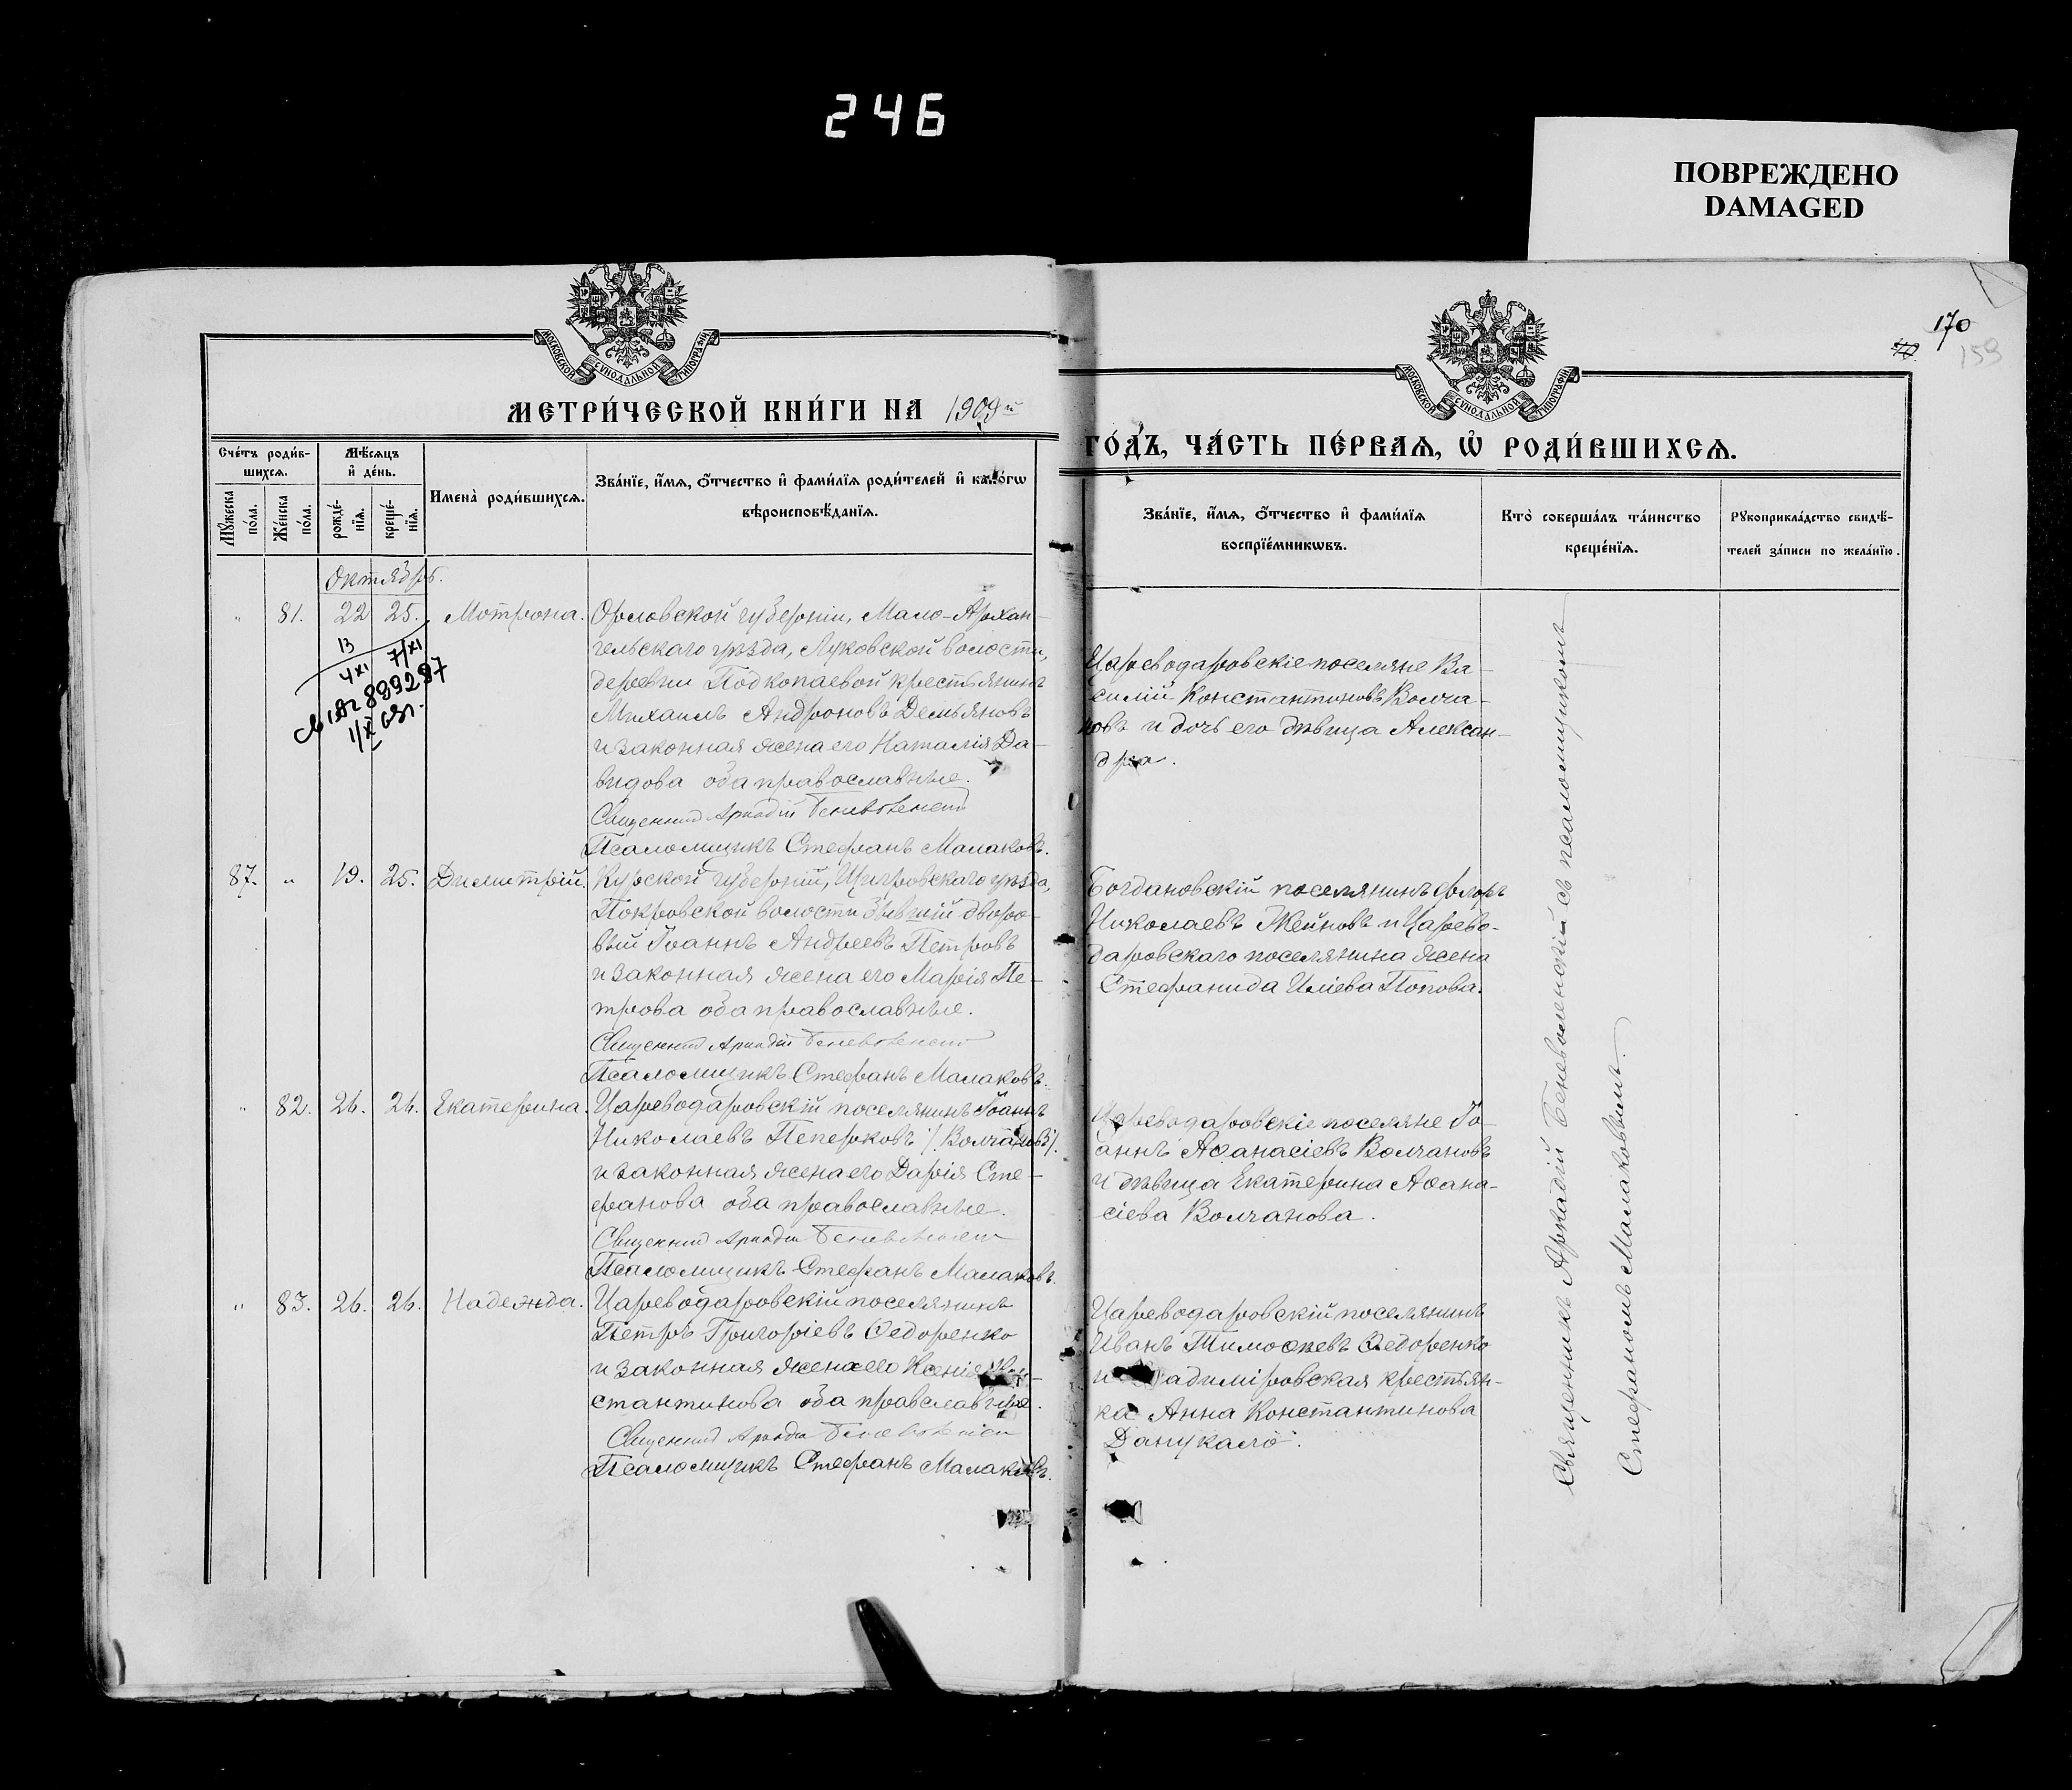 246
ПОВРЕЖДЕНО
DAMAGED
170
159
МОСКОВСКОЙ СѴНОДАЛЬНОЙ ТИПОГРАФІИ
МОСКОВСКОЙ СѴНОДАЛЬНОЙ ТИПОГРАФІИ
МЕТРИ́ЧЕСКОЙ КНИ́ГИ НА 1909й
ГО́ДЪ, ЧА́СТЬ ПЕ́РВАѦ, Ѡ҆ РОДИ́ВШИХСѦ.
Сче́тъ роди́в-
шихсѧ.
Мѣ́сѧцъ
и҆ де́нь.
Мꙋ́жеска
по́ла.
Же́нска
по́ла.
рожде́-
нїѧ.
креще́-
нїѧ.
Имена̀ роди́вшихсѧ.
Зва́нїе, и҆́мѧ, ѻ҆́тчество и҆ фами́лїѧ роди́телей и҆ како́гѡ
вѣроисповѣ́данїѧ.
Зва́нїе, и҆́мѧ, ѻ҆́тчество и҆ фами́лїѧ
воспрїе́мникѡвъ.
Кто̀ соверша́лъ та́инство
креще́нїѧ.
Рꙋкоприкла́дство свидѣ́-
телей за́писи по жела́нїю.
Октябрь.
„ 81. 22 25. Мотрона. Орловской губерніи, Мало-Архан-
гельскаго уѣзда, Луковской волости,
деревни Подкопаевой крестьянинъ
Михаилъ Андроновъ Демьяновъ
и законная жена его Наталія Да-
видова оба православные.
Священникъ Аркадій Беневоленскій
Псаломщикъ Стефанъ Малаковъ.
13
4 XI 7/XI
899287
Цареводаровскіе поселяне Ва-
силій Константиновъ Волча-
новъ и дочь его дѣвица Алексан-
дра.
87. „ 19. 25. Димитрій. Курской губерніи, Щигровскаго уѣзда,
Покровской волости бывшій дворо-
вый Іоаннъ Андреевъ Петровъ
и законная жена его Марія Пе-
трова оба православные.
Священникъ Аркадій Беневоленскій
Псаломщикъ Стефанъ Малаковъ.
Богдановскій поселянинъ Флоръ
Николаевъ Жейновъ и Царево-
даровскаго поселянина жена
Стефанида Иліева Попова.
„ 82. 26. 26. Екатерина. Цареводаровскій поселянинъ Іоаннъ
Николаевъ Пеперковъ /Волчановъ/.
и законная жена его Дарія Сте-
фанова оба православные.
Священникъ Аркадій Беневоленскій
Псаломщикъ Стефанъ Малаковъ.
Цареводаровскіе поселяне Іо-
аннъ Аѳанасіевъ Волчановъ
и дѣвица Екатерина Аѳана-
сіева Волчанова.
„ 83. 26. 26. Надежда. Цареводаровскій поселянинъ
Петръ Григоріевъ Ѳедоренко
и законная жена его Ксенія Кон-
стантинова оба правславные.
Священникъ Аркадій Беневоленскій
Псаломщикъ Стефанъ Малаковъ.
Цареводаровскій поселянинъ
Иванъ Тимоѳеевъ Ѳедоренко
и адиміровская крестьян-
ка Анна Константинова
Данукало.
Священникъ Аркадій Беневоленскій съ псаломщикомъ
Стефаномъ Малаковымъ.